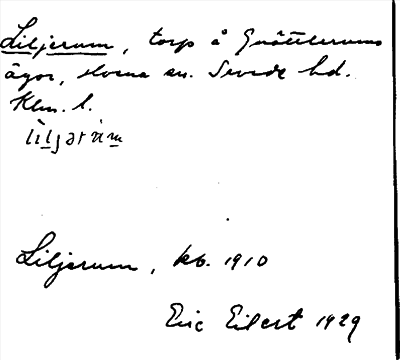 Liljerum, torp å Gnöttlerums
ägor, Flora sn. Sevede hd.
Klm. l.
Liljerum, kb. 1910
Eric Eilert 1929